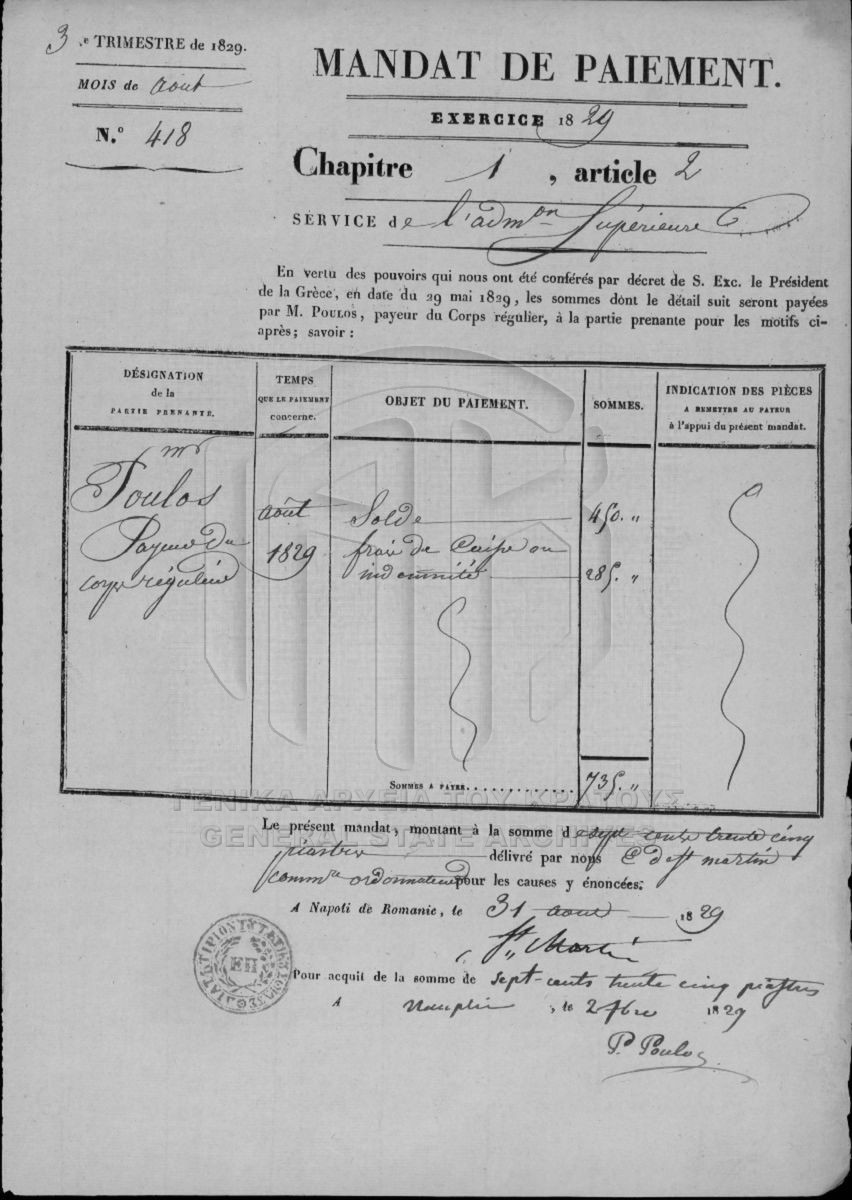 3 e TRIMESTRE de 1829.
MOIS de Aout
N.º 418
MANDAT DE PAIEMENT.
EXERCICE 1829
Chapitre 1, article 2
SERVICE de l'admon Supérieure
En vertu des pouvoirs qui nous ont été conférés par décret de S. Exc. le Président
de la Grèce, en date du 29 mai 1829, les sommes dont le détail suit seront payées
par M. POULOS, payeur du Corps régulier, à la partie prenante pour les motifs ci-
après; savoir :
DÉSIGNATION
de la
PARTIE PRENANTE.
TEMPS
QUE LE PAIEMENT
concerne.
OBJET DU PAIEMENT.
SOMMES.
INDICATION DES PIÈCES
A REMETTRE AU PAYEUR
à l'appui du présent mandat.
Mr
Poulos
Payeur du
corps régulier
Août
1829
Solde 450. "
frais de Caisse ou
indemnité 285. "
SOMMES A PAYER. 735. "
ΓΕΝΙΚΑ ΑΡΧΕΙΑ ΤΟΥ ΚΡΑΤΟΥΣ
GENERAL STATE ARCHIVES
Le présent mandat, montant à la somme de sept cents trente cinq
piastres délivré par nous C de St martin
commre ordonnateur pour les causes y énoncées.
A Napoli de Romanie, le 31 aout 1829
St Martin
Pour acquit de la somme de sept-cents trente cinq piastres
A Nauplie, le 2 7bre 1829
P. Poulos